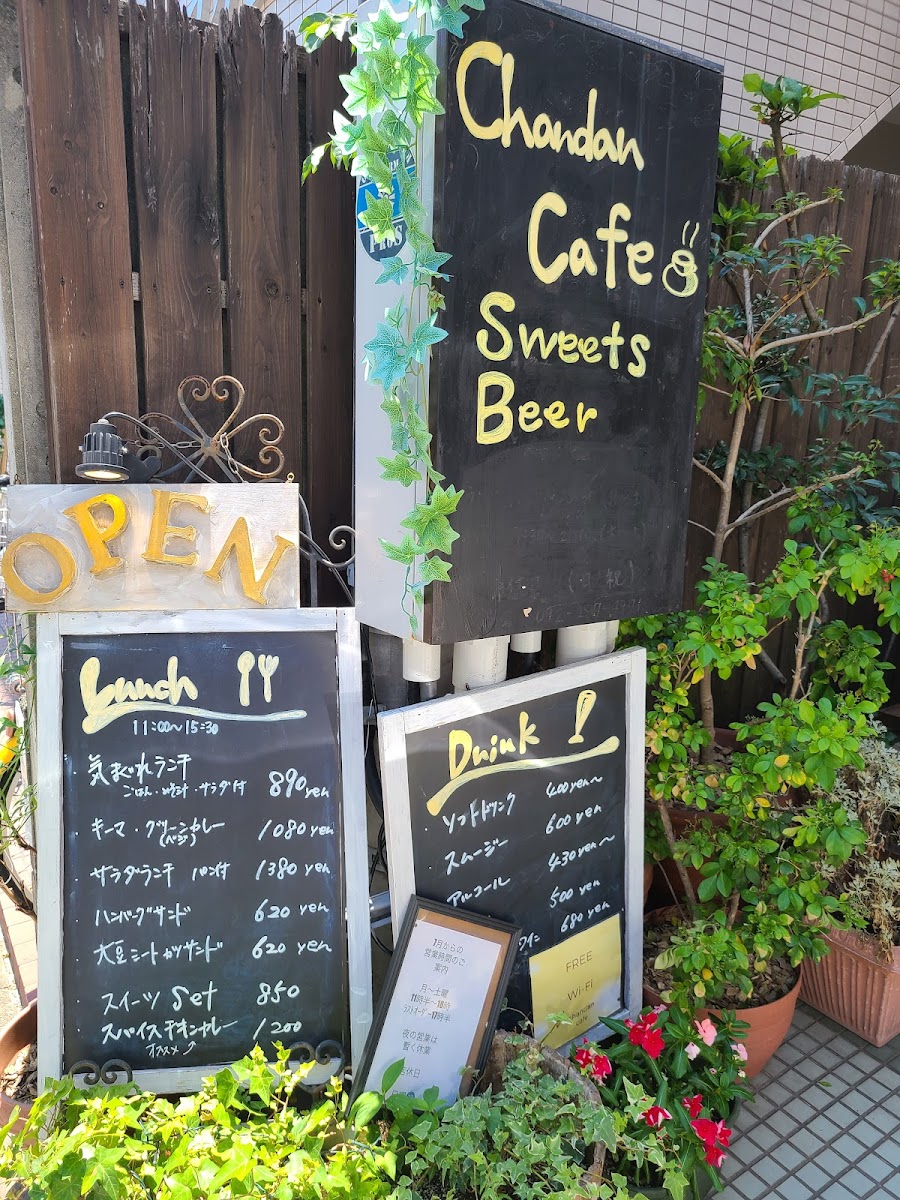 Chandan
Cafe
Sweets
Beer
PROS
OPEN
Lunch
11:00〜15:30
気まぐれランチ 890 yen
ごはん・みそ汁・サラダ付
キーマ・グリーンカレー 1080 yen
(ベジ)
サラダランチ パン付 1380 yen
ハンバーグサンド 620 yen
大豆ミートカツサンド 620 yen
スイーツ Set 850
スパイスチキンカレー 1200
オススメ
Drink
ソフトドリンク 400 yen〜
スムージー 600 yen
アルコール 430 yen〜
500 yen
680 yen
7月からの
営業時間のご
案内
月〜土曜
11時半〜18時
ラストオーダー17時半
夜の営業は
暫く休業
定休日
FREE
Wi-Fi
chandan
cafe